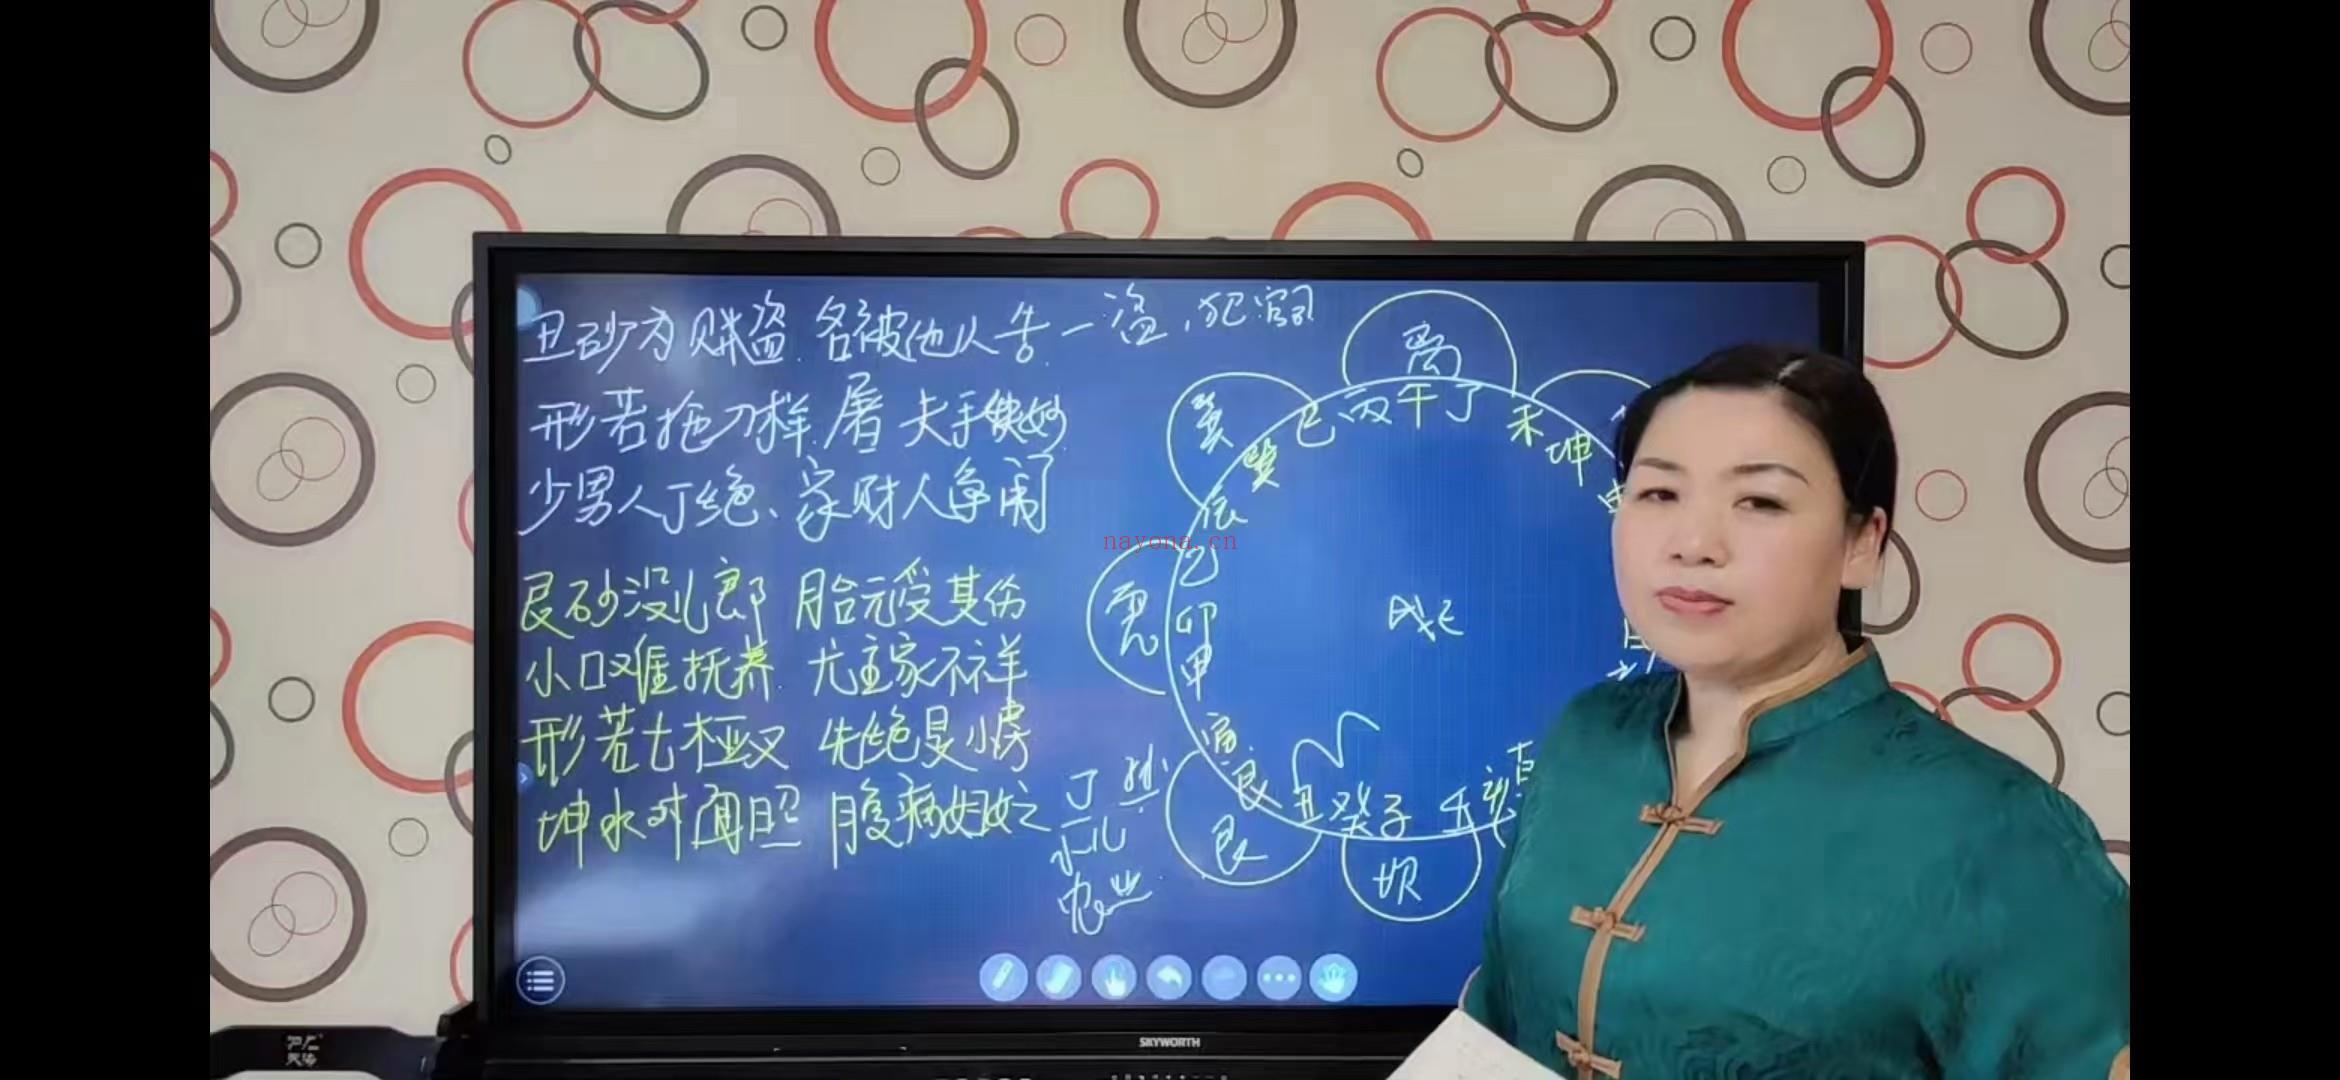 丑砂为贼盗.各被他人告一盗,犯官司
形若拖刀样.屠夫手缺妙
少男人丁绝、家财人争闹
艮砂没儿郎 胎元受其伤
小口难抚养.尤主家不祥
形若七桠叉 失绝是小房
坤水对面照 腹病妇女
丁
小儿
农业
离
巽
巳丙午丁
未坤
申
巽
辰
乙
卯
甲
寅
艮
丑癸子 壬
震
艮
坎
nayona.cn
SKYWORTH